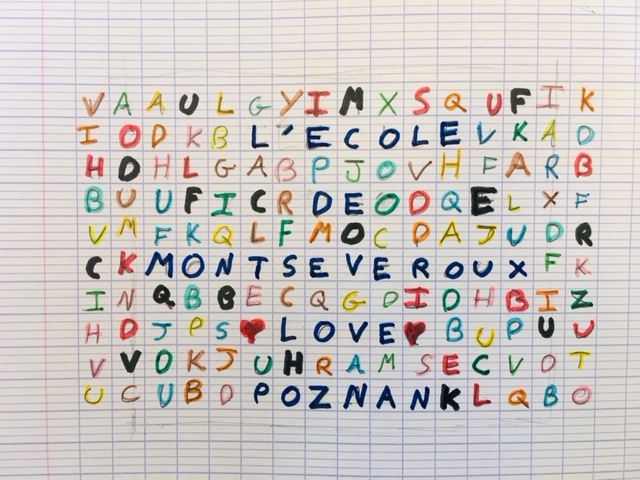 V A A U L G Y I M X S Q U F I K
I O D K B L ' E C O L E V K A D
H D H L G A B P J O V H F A R B
B U U F I C R D E O D Q E L X F
V M F K Q L F M O C D A J U D R
C K M O N T S E V E R O U X F K
I N Q B B E C Q G D I D H B I Z
H D J P S ♥ L O V E ♥ B U P U U
V V O K J U H R A M S E C V O T
U C U B D P O Z N A N K L Q B O